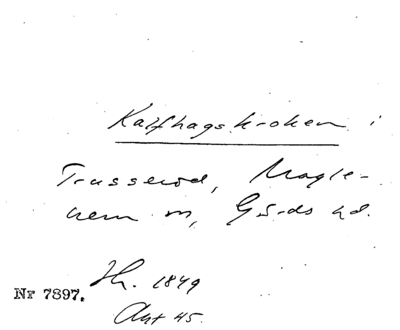 Kalfhagskroken i
Trusseröd, Magle-
hem sn, Gärds hd.
Nr 7897.
Jh. 1849
Akt 45.